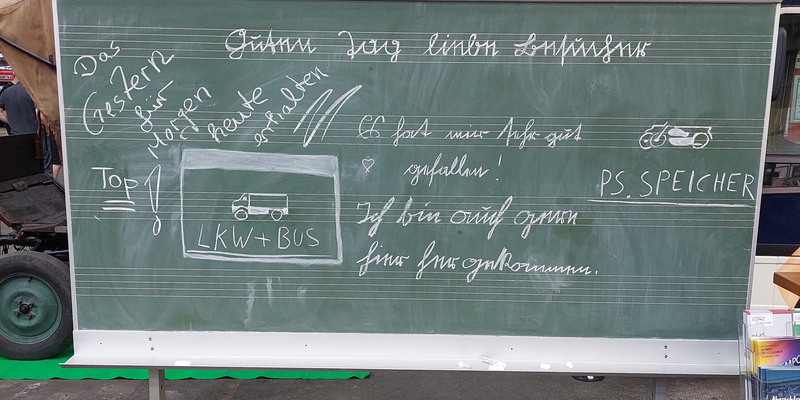 Guten Tag liebe Besucher
Das
Gestern
für
Morgen
heute
erhalten
Top!
LKW+BUS
Es hat mir sehr gut
gefallen!
Ich bin auch gern
hier her gekommen.
PS.SPEICHER